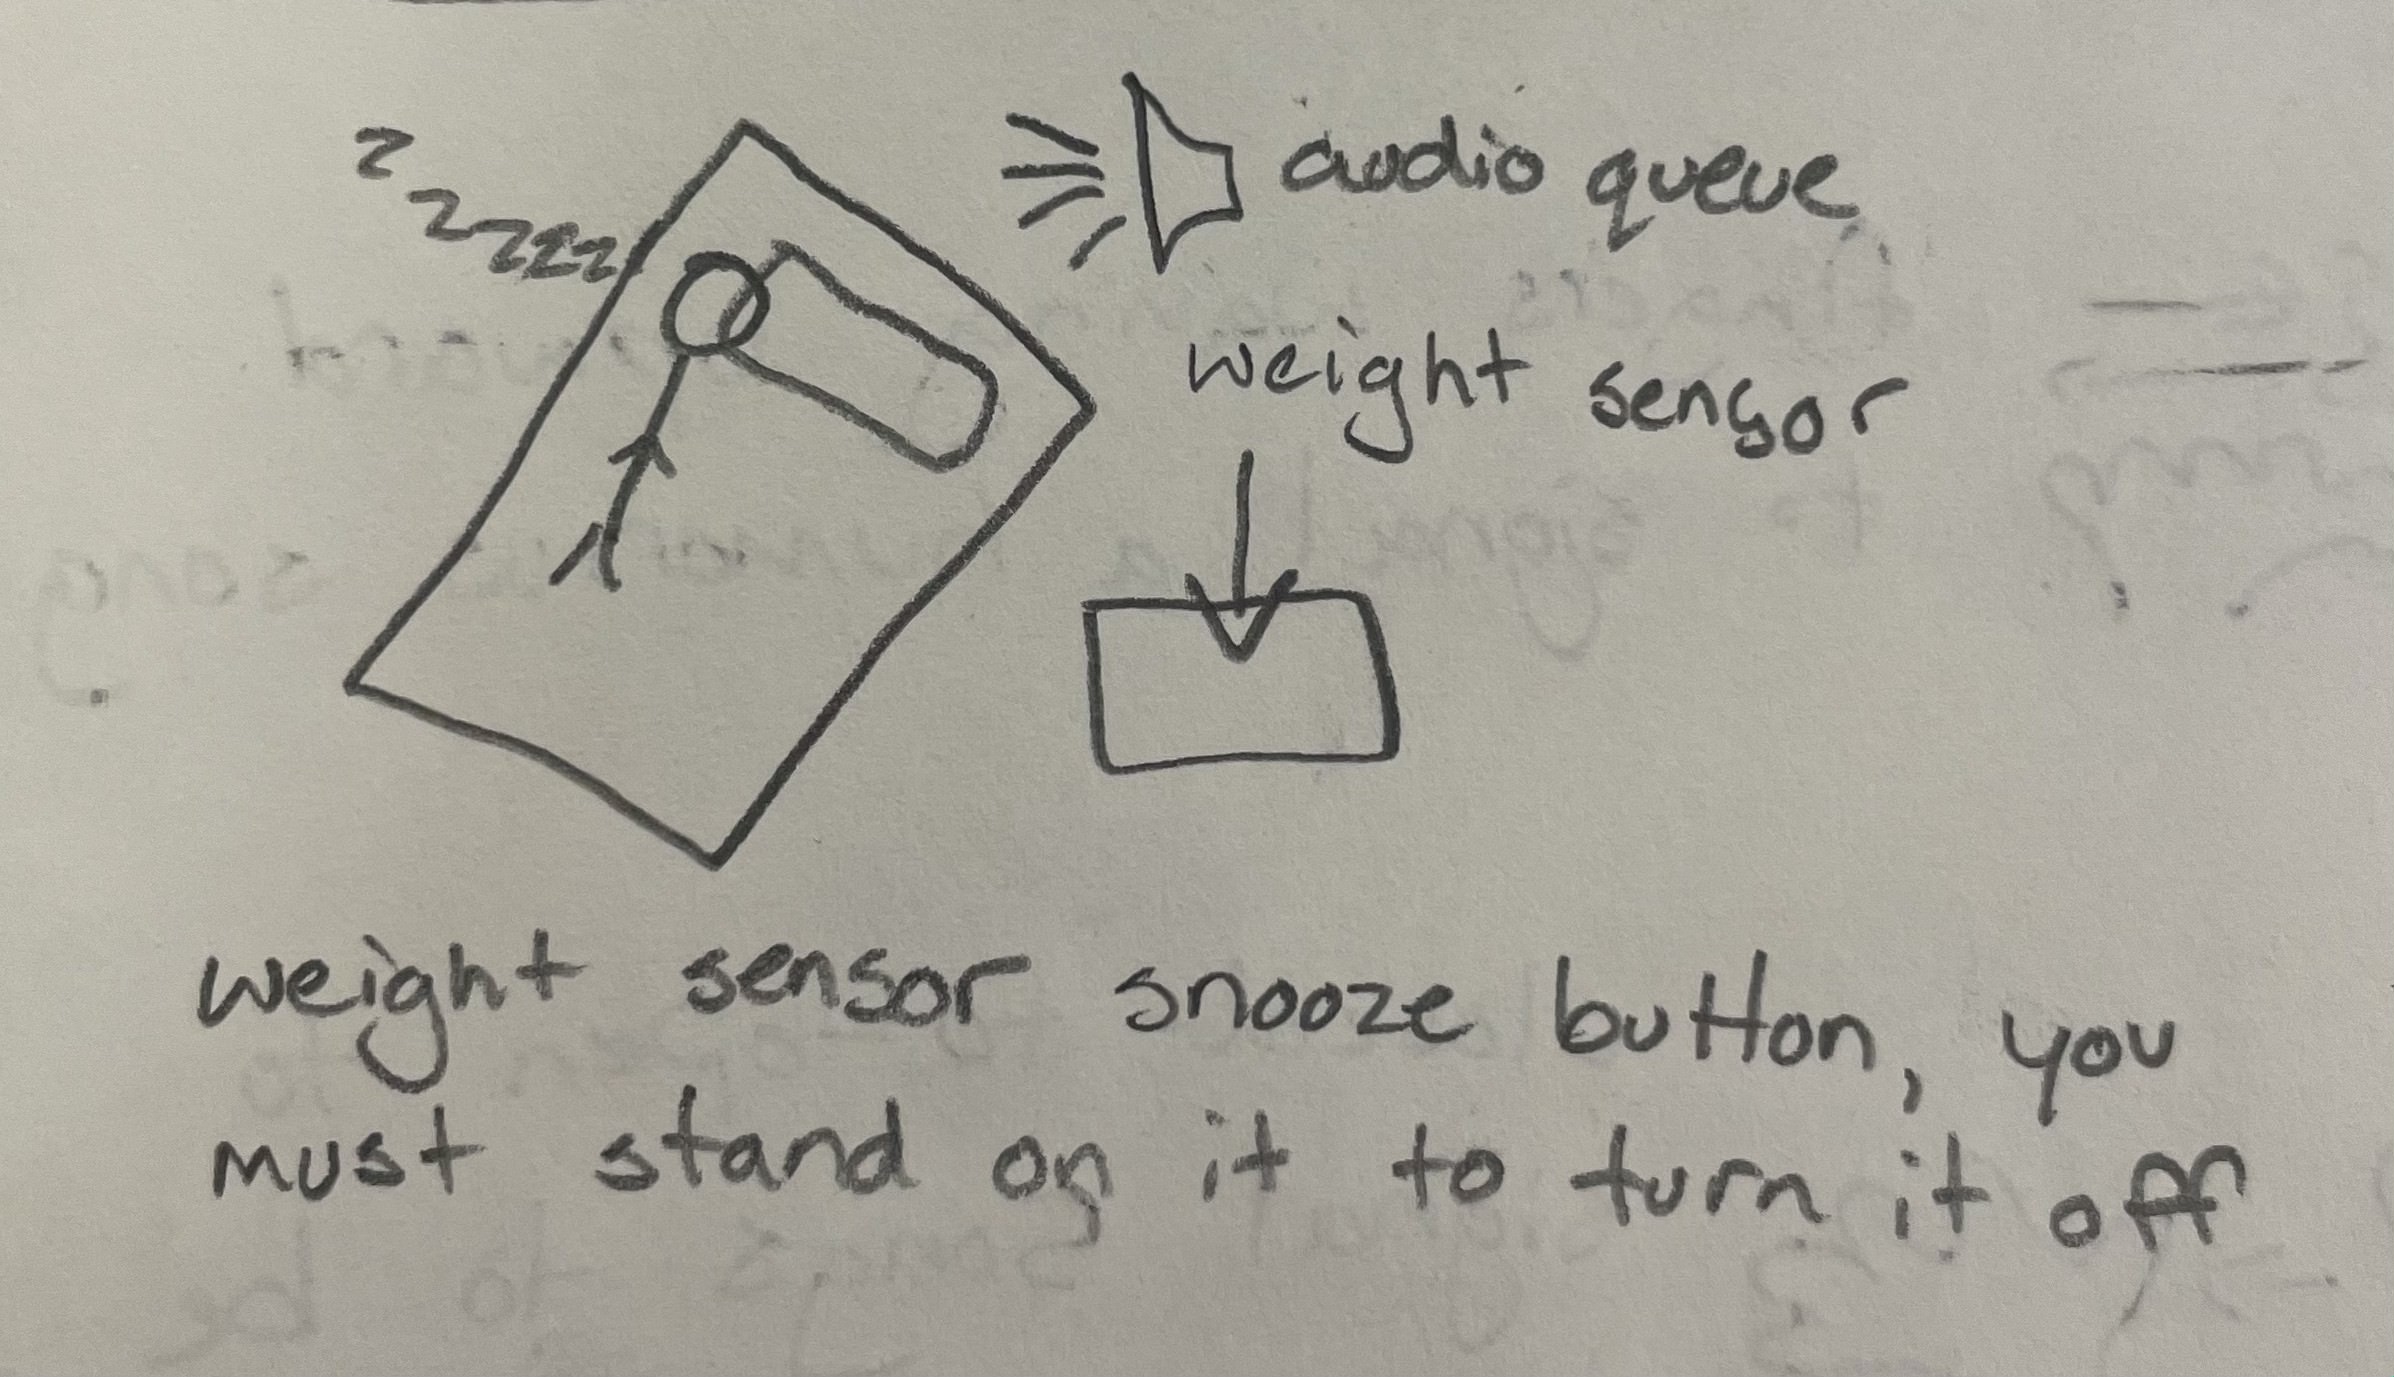 z z z z z z
audio queue
weight sensor
weight sensor snooze button, you
must stand on it to turn it off